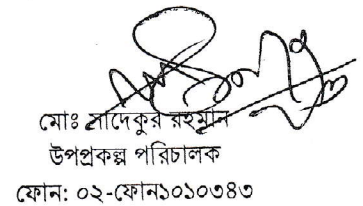 মোঃ সাদেকুর রহমান
উপপ্রকল্প পরিচালক
ফোন: ০২-ফোন১০১০৩৪৩